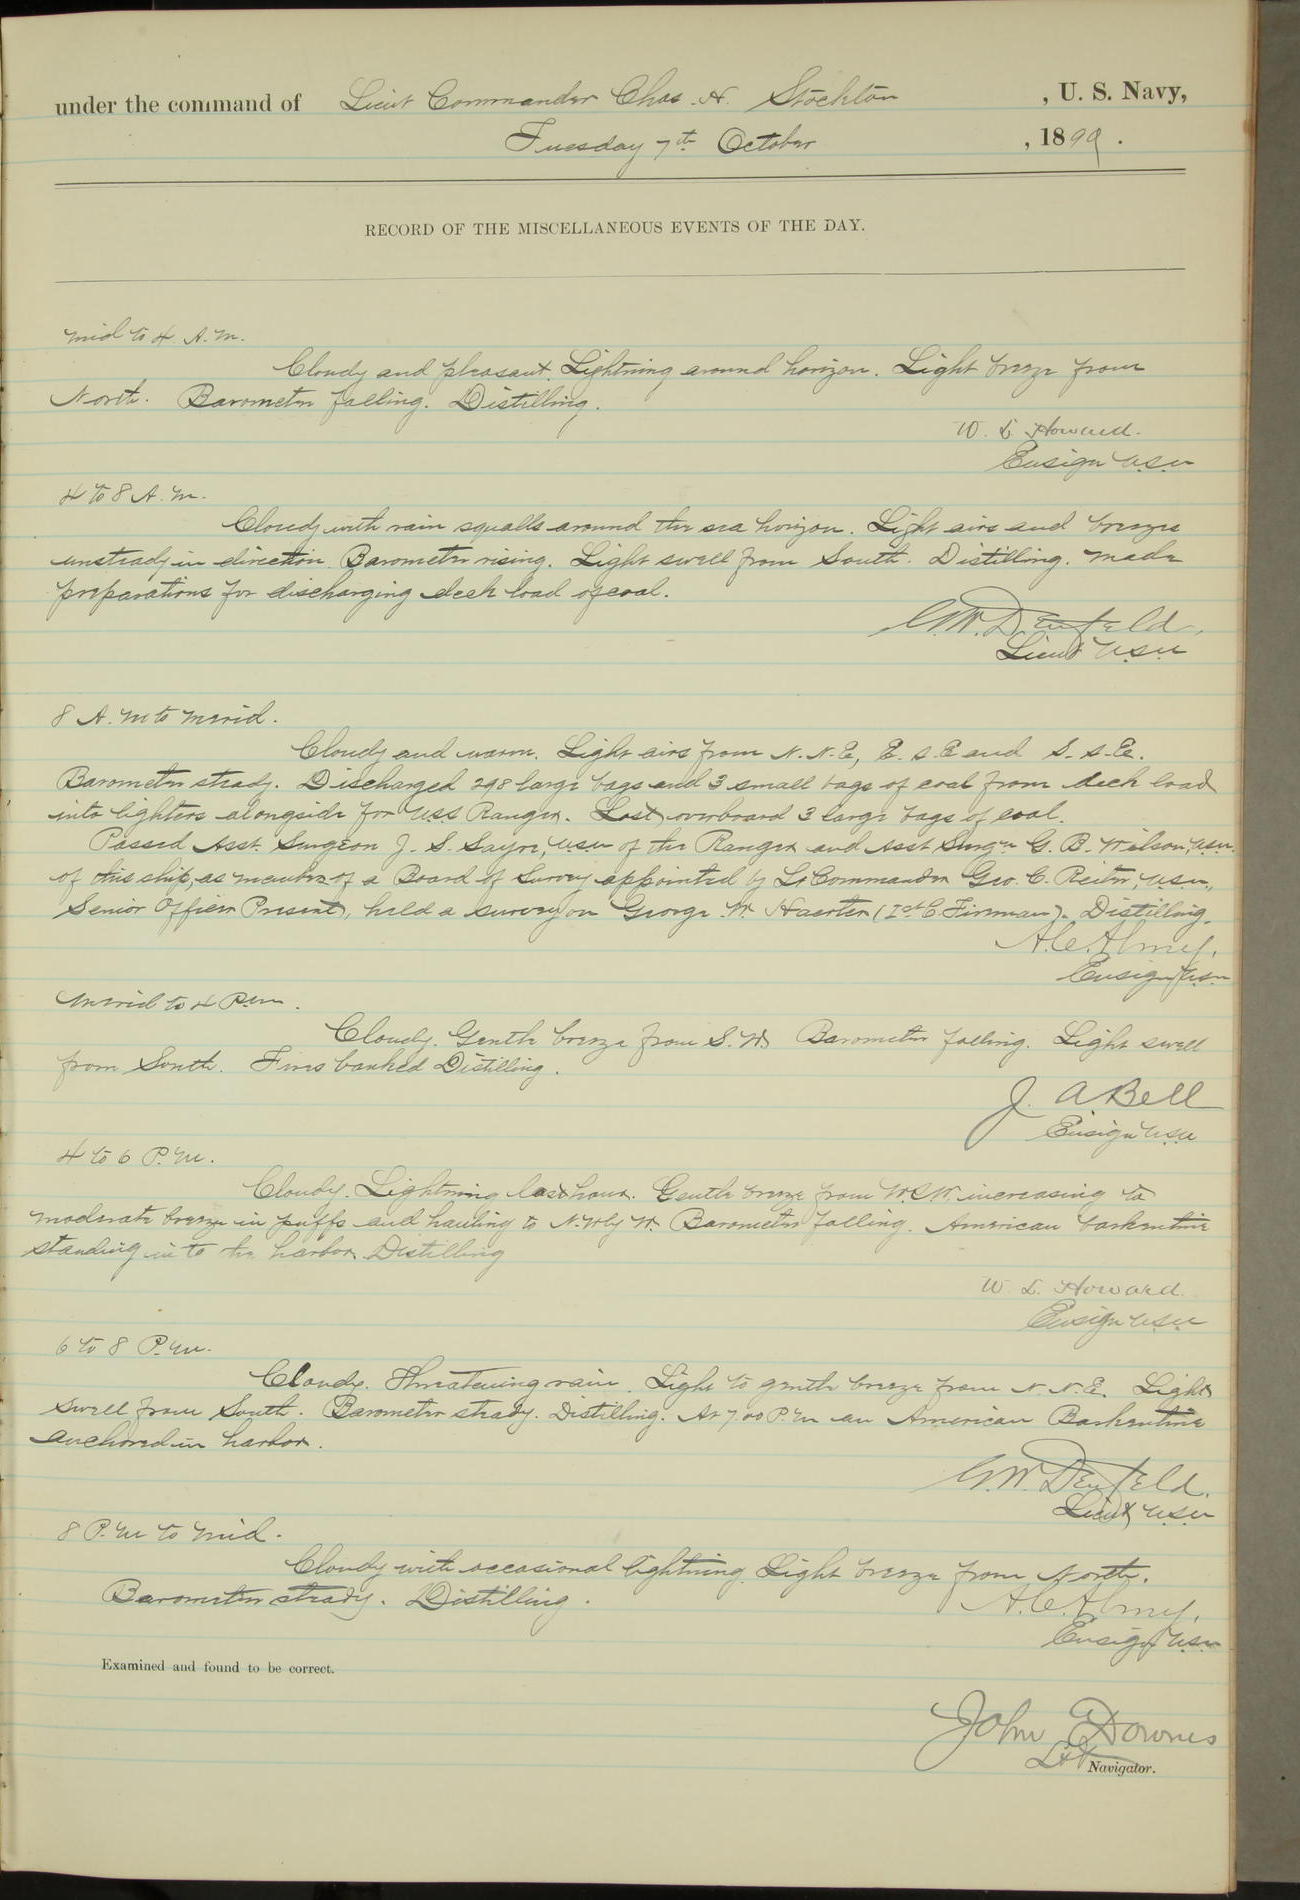 under the command of Lieut Commander Chas. H. Stockton, U. S. Navy,
Tuesday 7th October, 1890.
RECORD OF THE MISCELLANEOUS EVENTS OF THE DAY.
Mid to 4 A.M.
Cloudy and pleasant. Lightning around horizon. Light breeze from
North. Barometer falling. Distilling.
W. L. Howard.
Ensign U.S.N
4 to 8 A.M.
Cloudy with rain squalls around the sea horizon. Light airs and breezes
unsteady in direction. Barometer rising. Light swell from South. Distilling. Made
preparations for discharging deck load of coal.
G.W. Denfeld.
Lieut U.S.N
8 A.M to Merid.
Cloudy and warm. Light airs from N.N.E, E.S.E and S.S.E.
Barometer steady. Discharged 298 large bags and 3 small bags of coal from deck load
into lighters alongside for U.S.S Ranger. Lost overboard 3 large bags of coal.
Passed Asst. Surgeon J. S. Sayre, U.S.N of the Ranger and Asst Surgn G. B. Wilson, U.S.N.
of this ship, as members of a Board of Survey appointed by Lt Commander Geo. C. Reiter, U.S.N.,
Senior Officer Present, held a survey on George W. Haerter (1st C. Fireman). Distilling.
A.C. Almy.
Ensign U.S.N
Merid to 4 P.M.
Cloudy. Gentle breeze from S.W. Barometer falling. Light swell
from South. Fires banked Distilling.
J. A. Bell
Ensign U.S.N
4 to 6 P.M.
Cloudy. Lightning last hour. Gentle breeze from W.S.W. increasing to
moderate breeze in puffs and hauling to N.W by W. Barometer falling. American barkentine
standing in to the harbor. Distilling
W. L. Howard.
Ensign U.S.N
6 to 8 P.M.
Cloudy. Threatening rain. Light to gentle breeze from N.N.E. Light
swell from South. Barometer steady. Distilling. At 7.00 P.M an American Barkentine
anchored in harbor.
G.W. Denfeld.
Lieut, U.S.N
8 P.M to Mid.
Cloudy with occasional lightning. Light breeze from North.
Barometer steady. Distilling.
A.C. Almy.
Ensign U.S.N
Examined and found to be correct.
John Downes
Lt
Navigator.